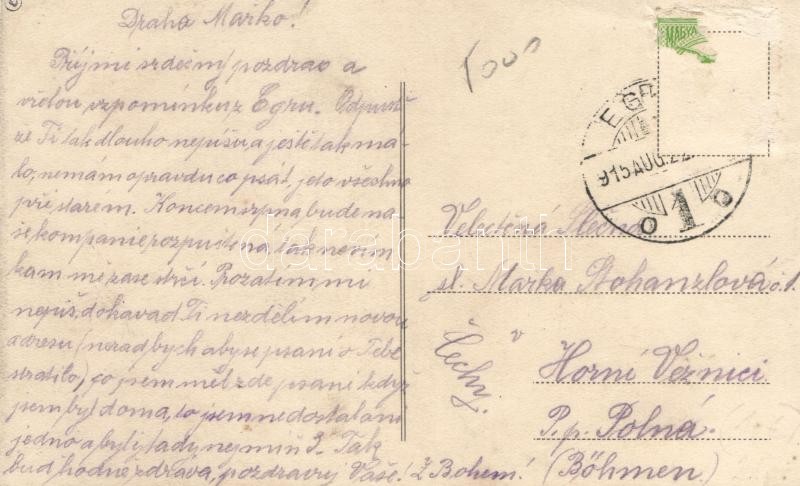 Drahá Mařko!
Přijmi srdečný pozdrav a
vřelou vzpomínku z Egru. Odpusť
že Ti tak dlouho nepíšu, a ještě tak má-
lo, nemám opravdu co psát, je to všechno
při starém. Koncem srpna bude na-
še kompanie rozpuštěna, tak nevím
kam mě zase strčí. Prozatím mi
nepiš, dokavad Ti nezdělím novou
adresu (nerad bych aby se psaní o Tebe
stratilo), co jsem měl zde psaní když
jsem byl doma, to jsem nedostal ani
jedno a byli tady nejmíň 3. Tak
buď hodně zdráva, pozdravuj Vaše! Z Bohem!
1000
MAGYA
EGER
915 AUG. 22
1
Velectěná Slečna
sl. Marka Stohanzlová č. 1.
v
Horní Věžnici
P. p. Polná.
(Böhmen)
Čechy.
darabanth